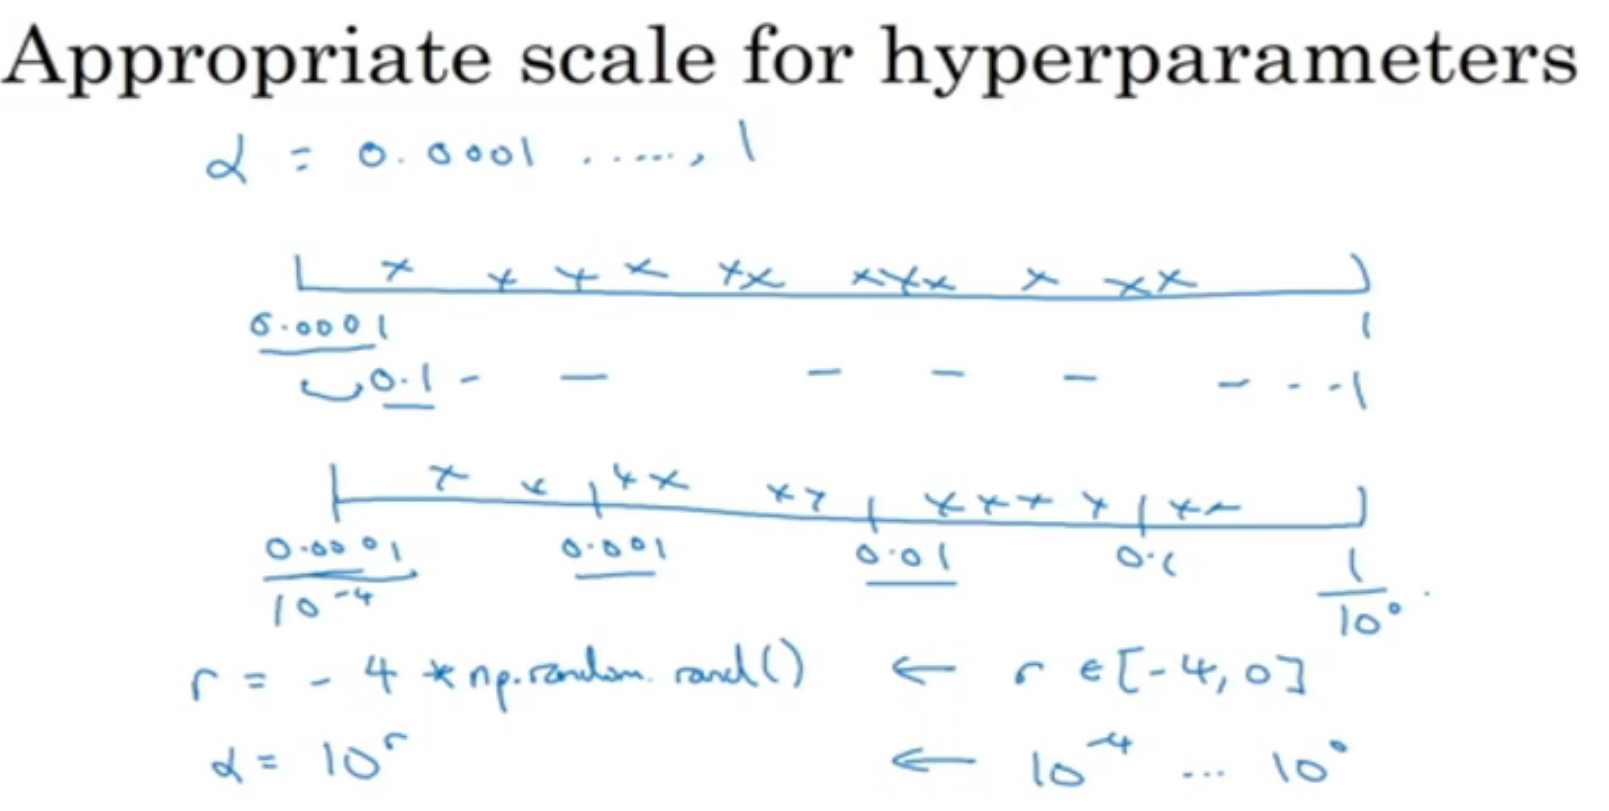 Appropriate scale for hyperparameters
α = 0.0001 ......, 1
0.0001 1
0.1 - - - - - - - - 1
0.0001 0.001 0.01 0.1 1
10^-4 10^0
r = -4 * np.random.rand() ← r ∈ [-4, 0]
α = 10^r ← 10^-4 ... 10^0